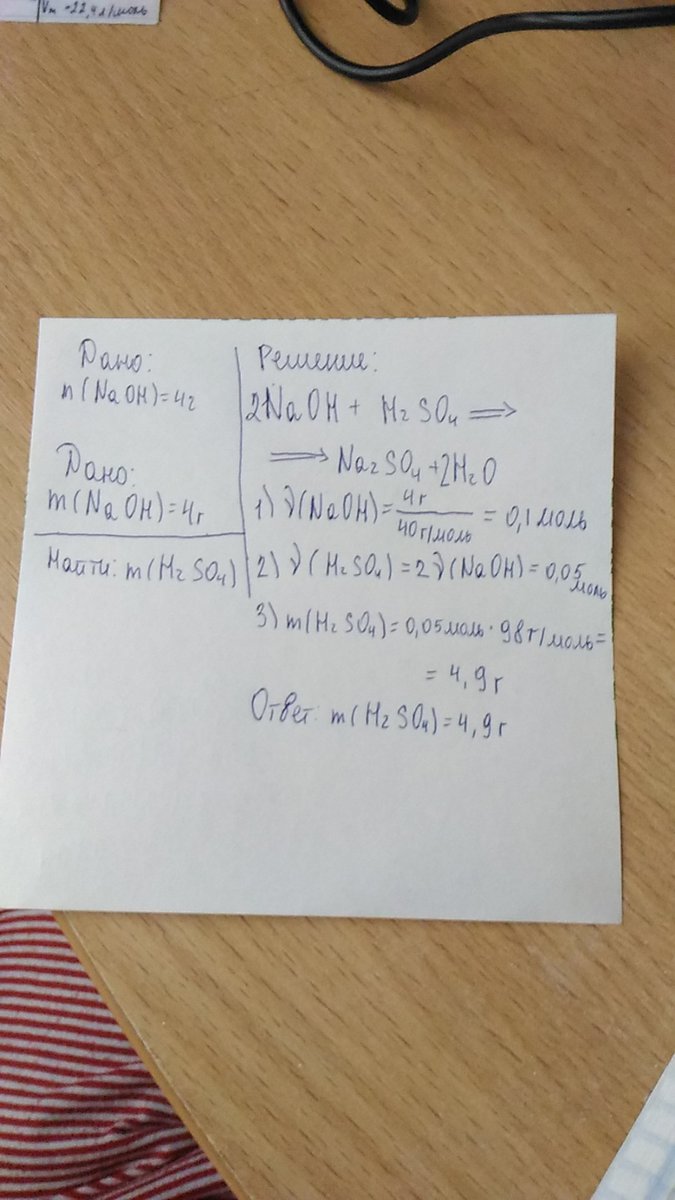 Vm -22,4 л/моль
Дано:
m(NaOH)=4г
Дано:
m(NaOH)=4г
Найти: m(H2SO4)
Решение:
2NaOH + H2SO4 ⟹
⟹ Na2SO4+2H2O
1) ν(NaOH)= 4г / 40г/моль = 0,1моль
2) ν(H2SO4)=2ν(NaOH)=0,05 моль
3) m(H2SO4)=0,05моль·98г/моль=
= 4,9г
Ответ: m(H2SO4)=4,9г